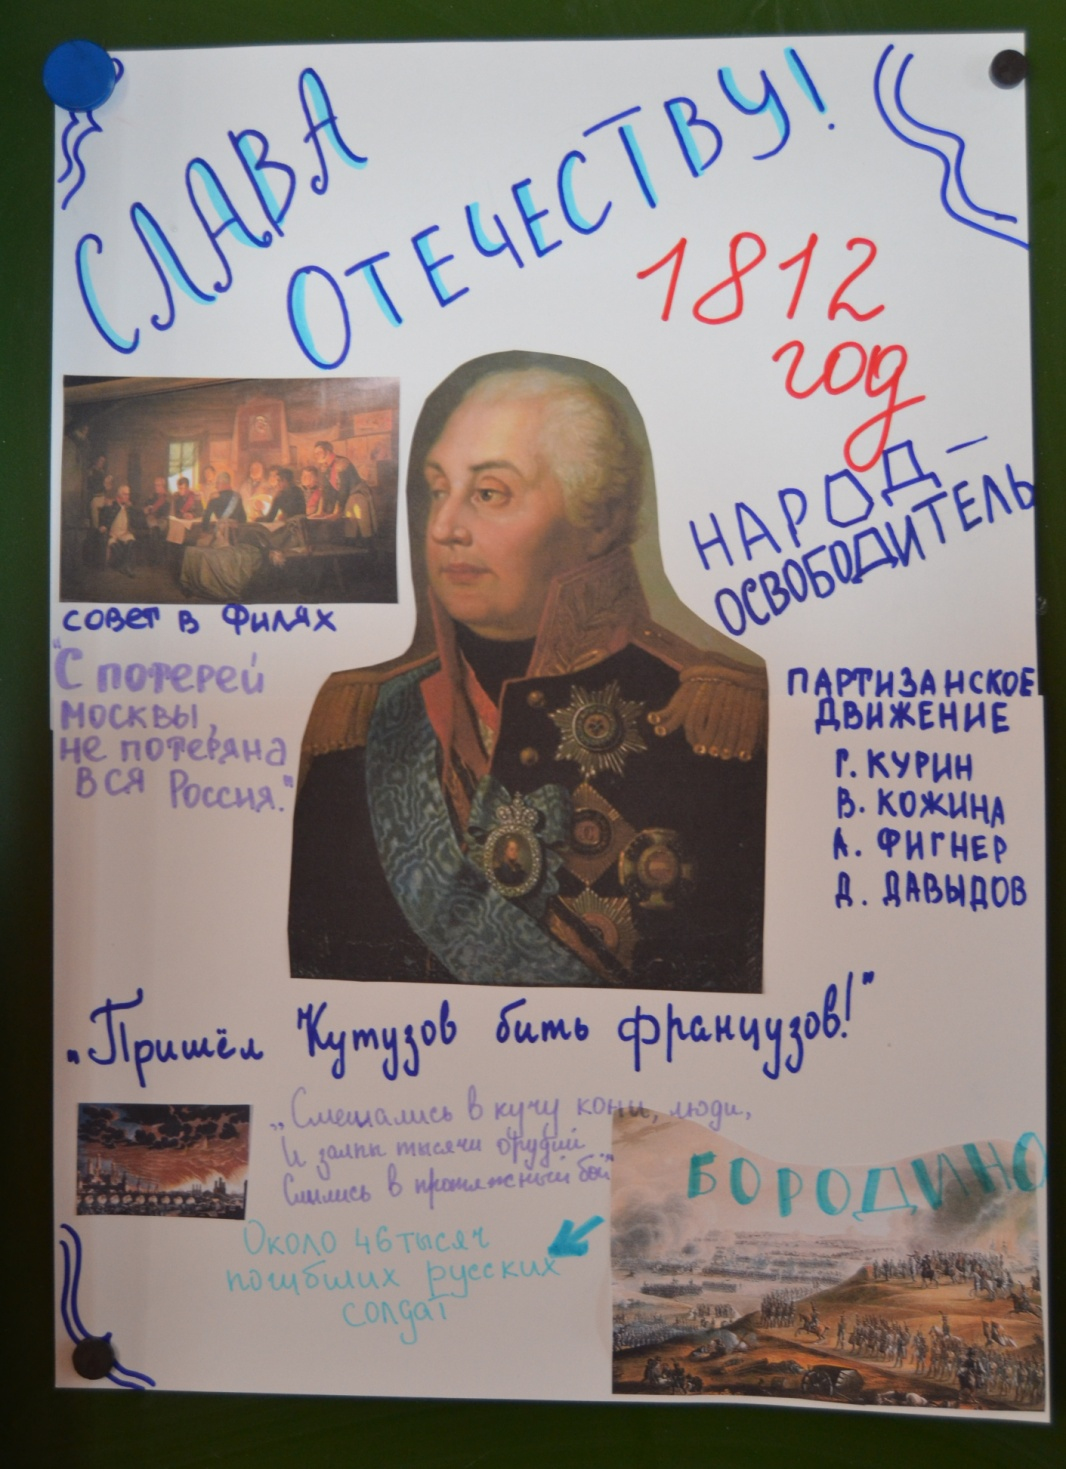 СЛАВА
ОТЕЧЕСТВУ!
1812
год
НАРОД –
ОСВОБОДИТЕЛЬ
совет в Филях
"С потерей
Москвы,
не потеряна
вся Россия."
ПАРТИЗАНСКОЕ
ДВИЖЕНИЕ
Г. КУРИН
В. КОЖИНА
А. ФИГНЕР
Д. ДАВЫДОВ
„Пришёл Кутузов бить французов!"
„Смешались в кучу кони, люди,
И залпы тысячи орудий
Слились в протяжный вой"
БОРОДИНО
Около 46 тысяч
погибших русских
солдат